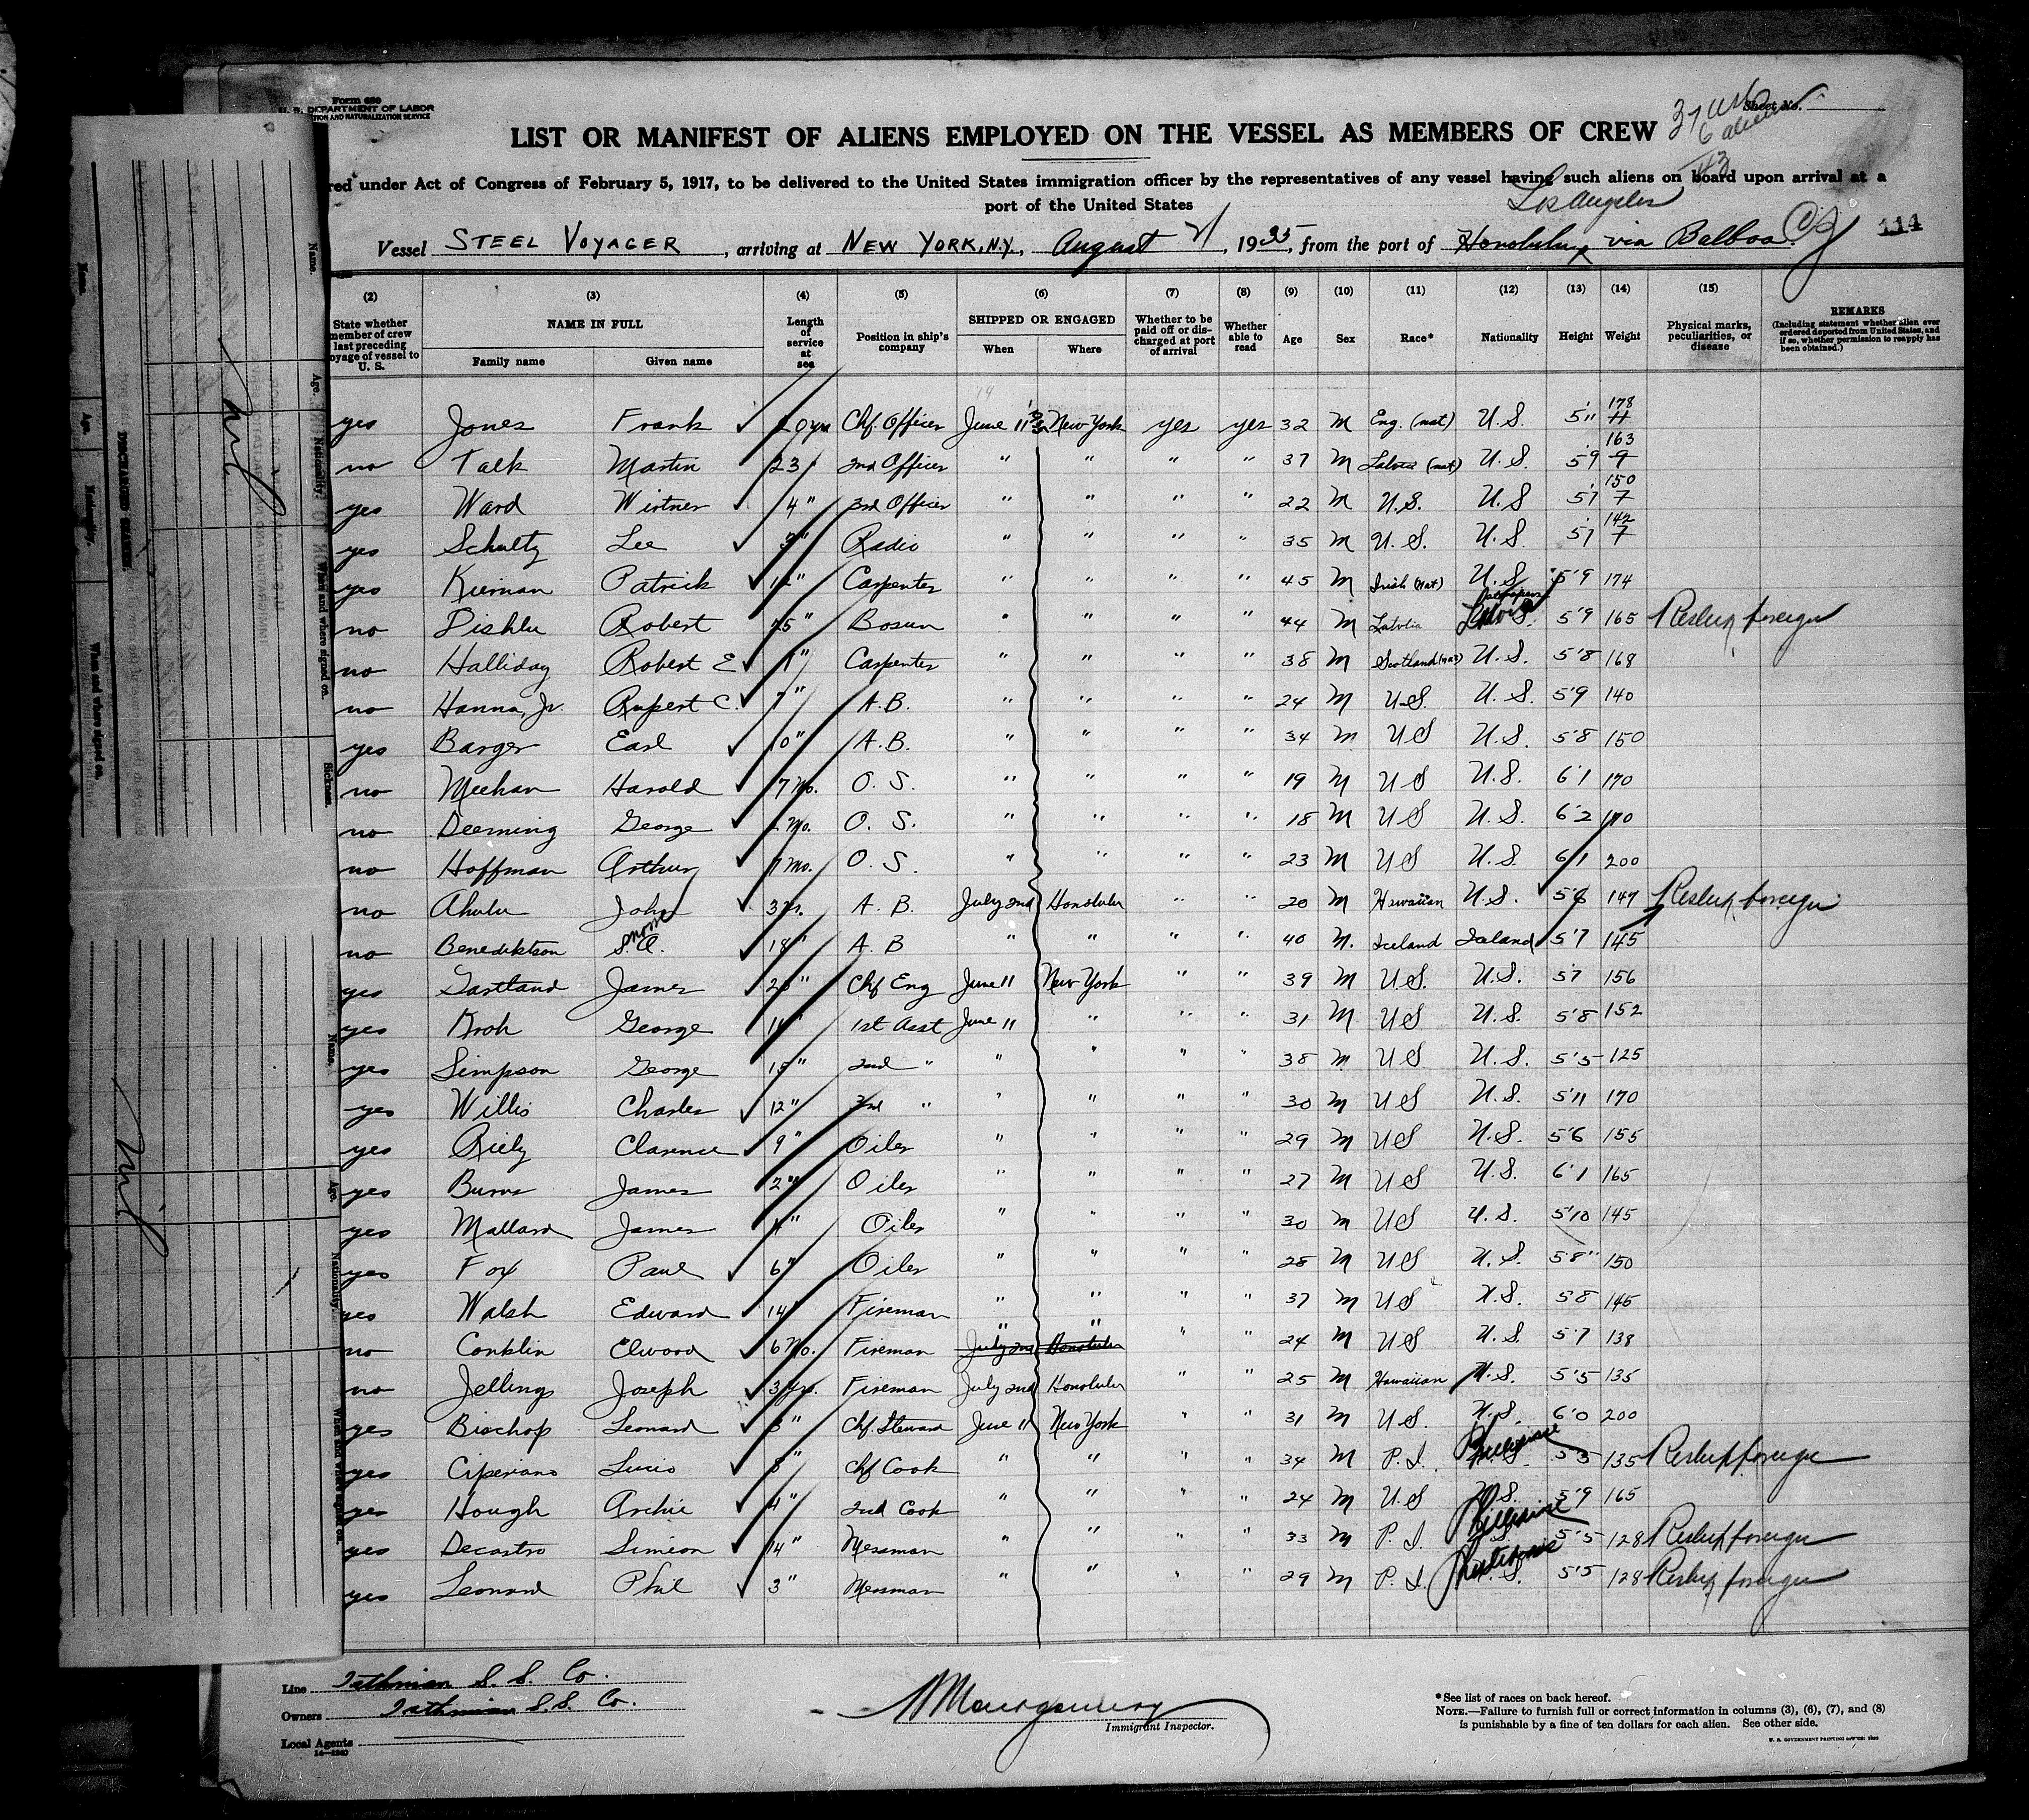 Form 680
U. S. DEPARTMENT OF LABOR
TION AND NATURALIZATION SERVICE
Sheet No.
37 USC
6 aliens
43
LIST OR MANIFEST OF ALIENS EMPLOYED ON THE VESSEL AS MEMBERS OF CREW
red under Act of Congress of February 5, 1917, to be delivered to the United States immigration officer by the representatives of any vessel having such aliens on board upon arrival at a
port of the United States
Los Angeles
Vessel STEEL VOYAGER, arriving at NEW YORK, N.Y., August, 1935, from the port of Honolulu via Balboa C.Z. 114
(2) (3) (4) (5) (6) (7) (8) (9) (10) (11) (12) (13) (14) (15)
State whether member of crew last preceding oyage of vessel to U. S. NAME IN FULL Family name Given name Length of service at sea Position in ship's company SHIPPED OR ENGAGED When Where Whether to be paid off or discharged at port of arrival Whether able to read Age Sex Race* Nationality Height Weight Physical marks, peculiarities, or disease REMARKS (Including statement whether alien ever ordered deported from United States, and if so, whether permission to reapply has been obtained.)
yes Jones Frank 20 yrs Chf. Officer June 11 New York yes yes 32 M Eng. (nat) U.S. 5'11 178
no Talk Martin 23 2nd Officer " " " " 37 M Latvia (nat) U.S. 5'9 163
yes Ward 4" 3rd Officer " " " " 22 M U.S. U.S 5'7 150
yes Schultz Lee Radio " " " " 35 M U.S. U.S. 5'7 142
yes Kiernan Patrick Carpenter " " " " 45 M Irish (nat) U.S. 5'9 174
no Robert 25" Bosun " " " " 44 M Latvia Latvia 5'9 165 Reship foreign
no Halliday Robert E Carpenter " " " " 38 M Scotland (nat) U.S. 5'8 168
no Hanna, Jr. Rupert C. 7" A.B. " " " " 24 M U.S. U.S. 5'9 140
yes Barger Earl 10" A.B. " " " " 34 M US U.S. 5'8 150
no Meehan Harold 7 mo. O.S. " " " " 19 M US U.S. 6'1 170
no Deeming George 2 mo. O.S. " " " " 18 M US U.S. 6'2
no Hoffman Arthur mo. O.S. " " " " 23 M US U.S. 6'1 200
no Ahulu John 3 yr. A.B. July 2nd Honolulu " " 20 M Hawaiian U.S. 5'6 147 Reship foreign
no Benediktson S.A. 18" A.B " " " " 40 M. Iceland Iceland 5'7 145
yes Gartland James Chf Eng June 11 New York " " 39 M U.S. U.S. 5'7 156
yes Kroh George 1st Asst June 11 " " " 31 M US U.S. 5'8 152
yes Simpson George 15" 2nd " " " " " 38 M US U.S. 5'5 125
yes Willis Charles 12" 3rd " " " " " 30 M US U.S. 5'11 170
yes Riely Clarence 9" Oiler " " " " 29 M US U.S. 5'6 155
yes Burns James Oiler " " " " 27 M US U.S. 6'1 165
yes Mallard James Oiler " " " " 30 M US U.S. 5'10 145
yes Fox Paul 6" Oiler " " " " 28 M US U.S. 5'8" 150
yes Walsh Edward 14" Fireman " " " " 37 M US U.S. 5'8 145
no Conklin Elwood 6 Mo. Fireman July 2nd Honolulu " " " " 24 M US U.S. 5'7 138
no Jellings Joseph 3 yrs. Fireman July 2nd Honolulu " " 25 M Hawaiian U.S. 5'5 135
yes Bischop Leonard 8" Chf. Steward June 11 New York " " 31 M U.S. U.S. 6'0 200
yes Ciperiano Lucio 8" Chf Cook " " " " 34 M P.I. Philippine 5'3 135 Reship foreign
yes Hough Archie 4" 2nd Cook " " " " 24 M U.S U.S. 5'9 165
yes Decastro Simeon 14" Messman " " " " 33 M P.I. Philippine 5'5 128 Reship foreign
yes Leonard Phil 3" Messman " " " " 29 M P.I. Philippine 5'5 128 Reship foreign
Nil
Nil
DISCHARGED SEAMEN
Name. Age. Nationality. When and where signed on.
Name. Age. Nationality. When and where signed on. Sickness.
Name. Age. Nationality. When and where signed on.
Line Isthmian S.S. Co.
Owners Isthmian S.S. Co.
Local Agents
14—1240
Montgomery
Immigrant Inspector.
*See list of races on back hereof.
NOTE.—Failure to furnish full or correct information in columns (3), (6), (7), and (8)
is punishable by a fine of ten dollars for each alien. See other side.
U. S. GOVERNMENT PRINTING OFFICE